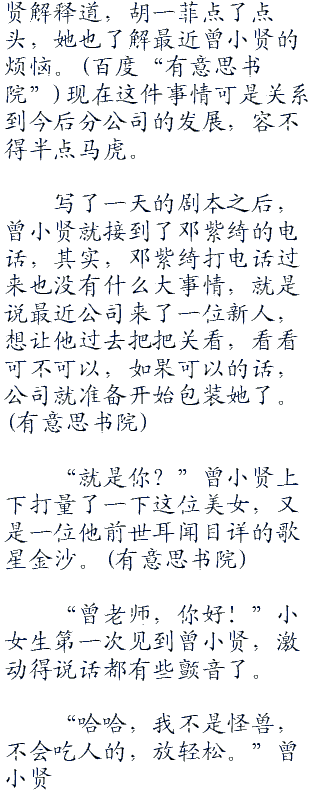 贤解释道，胡一菲点了点
头，她也了解最近曾小贤的
烦恼。(百度“有意思书
院”)现在这件事情可是关系
到今后分公司的发展，容不
得半点马虎。
写了一天的剧本之后，
曾小贤就接到了邓紫绮的电
话，其实，邓紫绮打电话过
来也没有什么大事情，就是
说最近公司来了一位新人，
想让他过去把把关看，看看
可不可以，如果可以的话，
公司就准备开始包装她了。
(有意思书院)
“就是你？”曾小贤上
下打量了一下这位美女，又
是一位他前世耳闻目详的歌
星金沙。(有意思书院)
“曾老师，你好！”小
女生第一次见到曾小贤，激
动得说话都有些颤音了。
“哈哈，我不是怪兽，
不会吃人的，放轻松。”曾
小贤